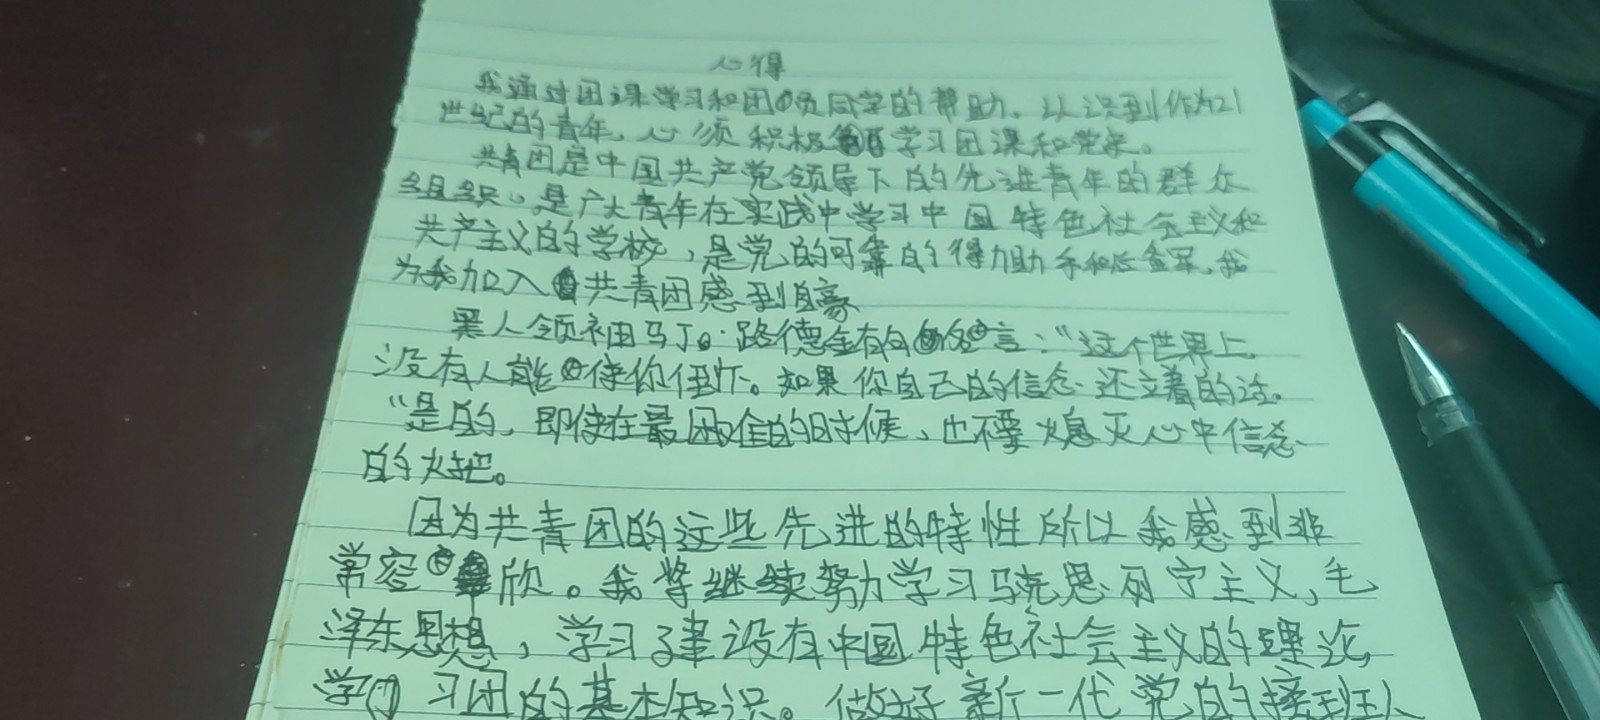 心得
我通过团课学习和团员同学的帮助。认识到作为21
世纪的青年,心须积极学习团课和党课。
共青团是中国共产党领导下的先进青年的群众
组织。是广大青年在实践中学习中国特色社会主义和
共产主义的学校,是党的可靠的得力助手和后备军,我
为我加入共青团感到自豪
黑人领袖马丁。路德金有的名言:“这个世界上
没有人能使你倒下。如果你自己的信念还立着的话。
“是的,即使在最困难的时候,也不要熄灭心中信念
的火把。
因为共青团的这些先进的特性所以我感到非
常欣。我将继续努力学习马克思列宁主义,毛
泽东思想,学习建设有中国特色社会主义的理论,
学习团的基本知识。做好新一代党的接班人